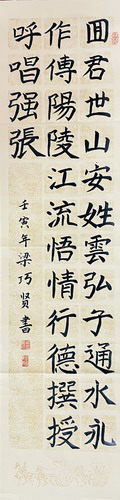 囬君世山安姓雲弘子通水礼
作傳陽陵江流悟情行德撰授
呼唱强張
壬寅年梁巧賢書